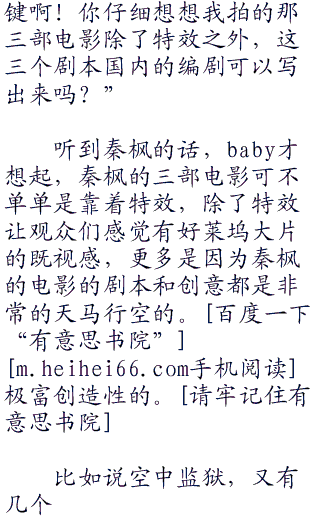 键啊！你仔细想想我拍的那
三部电影除了特效之外，这
三个剧本国内的编剧可以写
出来吗？”
听到秦枫的话，baby才
想起，秦枫的三部电影可不
单单是靠着特效，除了特效
让观众们感觉有好莱坞大片
的既视感，更多是因为秦枫
的电影的剧本和创意都是非
常的天马行空的。[百度一下
“有意思书院”]
[m.heihei66.com手机阅读]
极富创造性的。[请牢记住有
意思书院]
比如说空中监狱，又有
几个